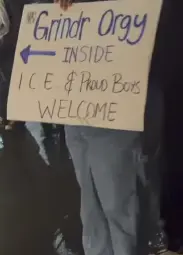 Grindr Orgy
INSIDE
ICE & PROUD BOYS
WELCOME